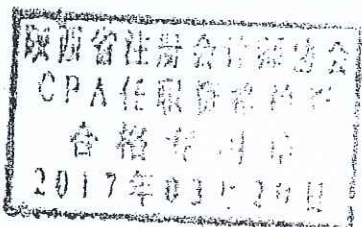 陕西省注册会计师协会
CPA任职资格检查
合格专用章
2017年03月29日